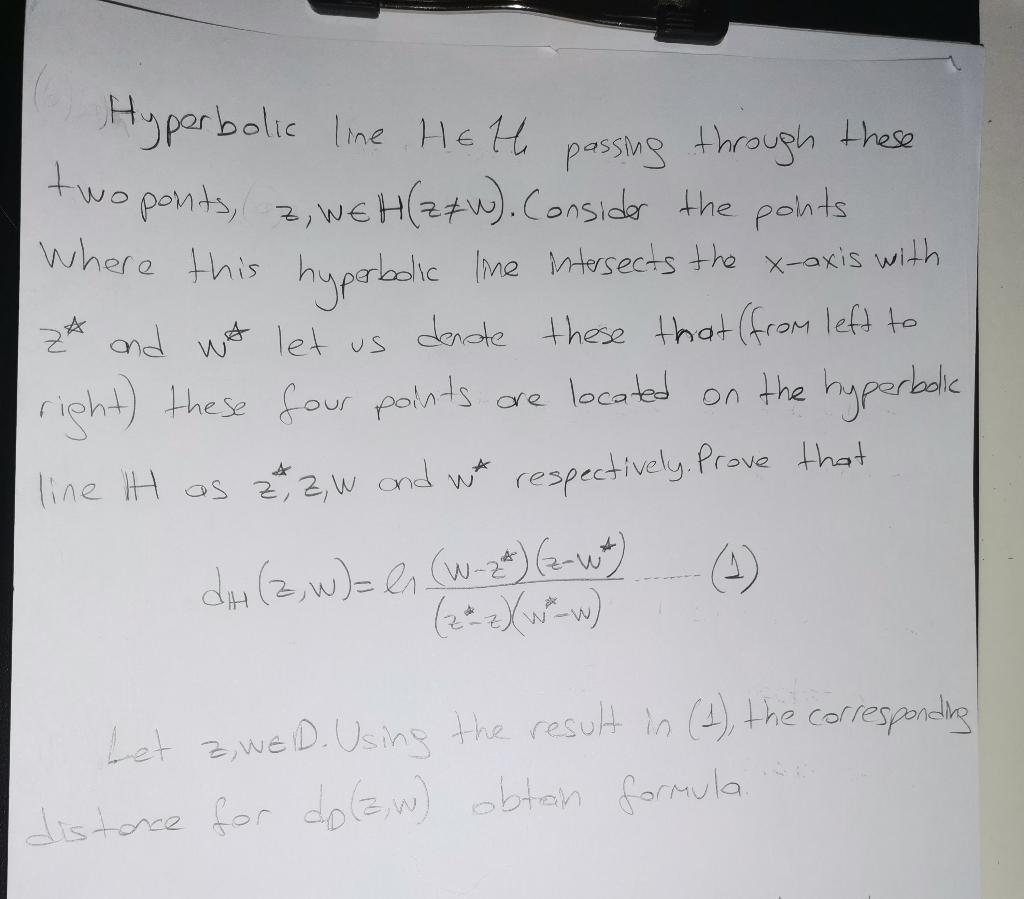 Hyperbolic line H∈ℋ passing through these
two points, z,w∈H(z≠w). Consider the points
Where this hyperbolic line intersects the x-axis with
z* and w* let us denote these that (from left to
right) these four points are located on the hyperbolic
line ℍ as z*, z, w and w* respectively. Prove that
dℍ(z,w)=ln (w-z*)(z-w*)/(z*-z)(w*-w) ........ (1)
Let z,w∈D. Using the result in (1), the corresponding
distance for d_D(z,w) obtain formula.